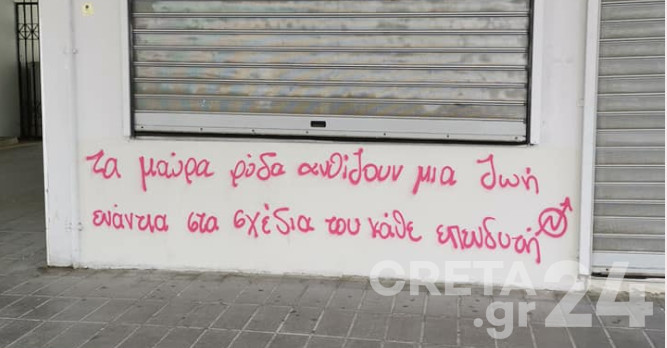 τα μαύρα ρόδα ανθίζουν μια ζωή
ενάντια στα σχέδια του κάθε επενδυτή
CRETA24
.gr